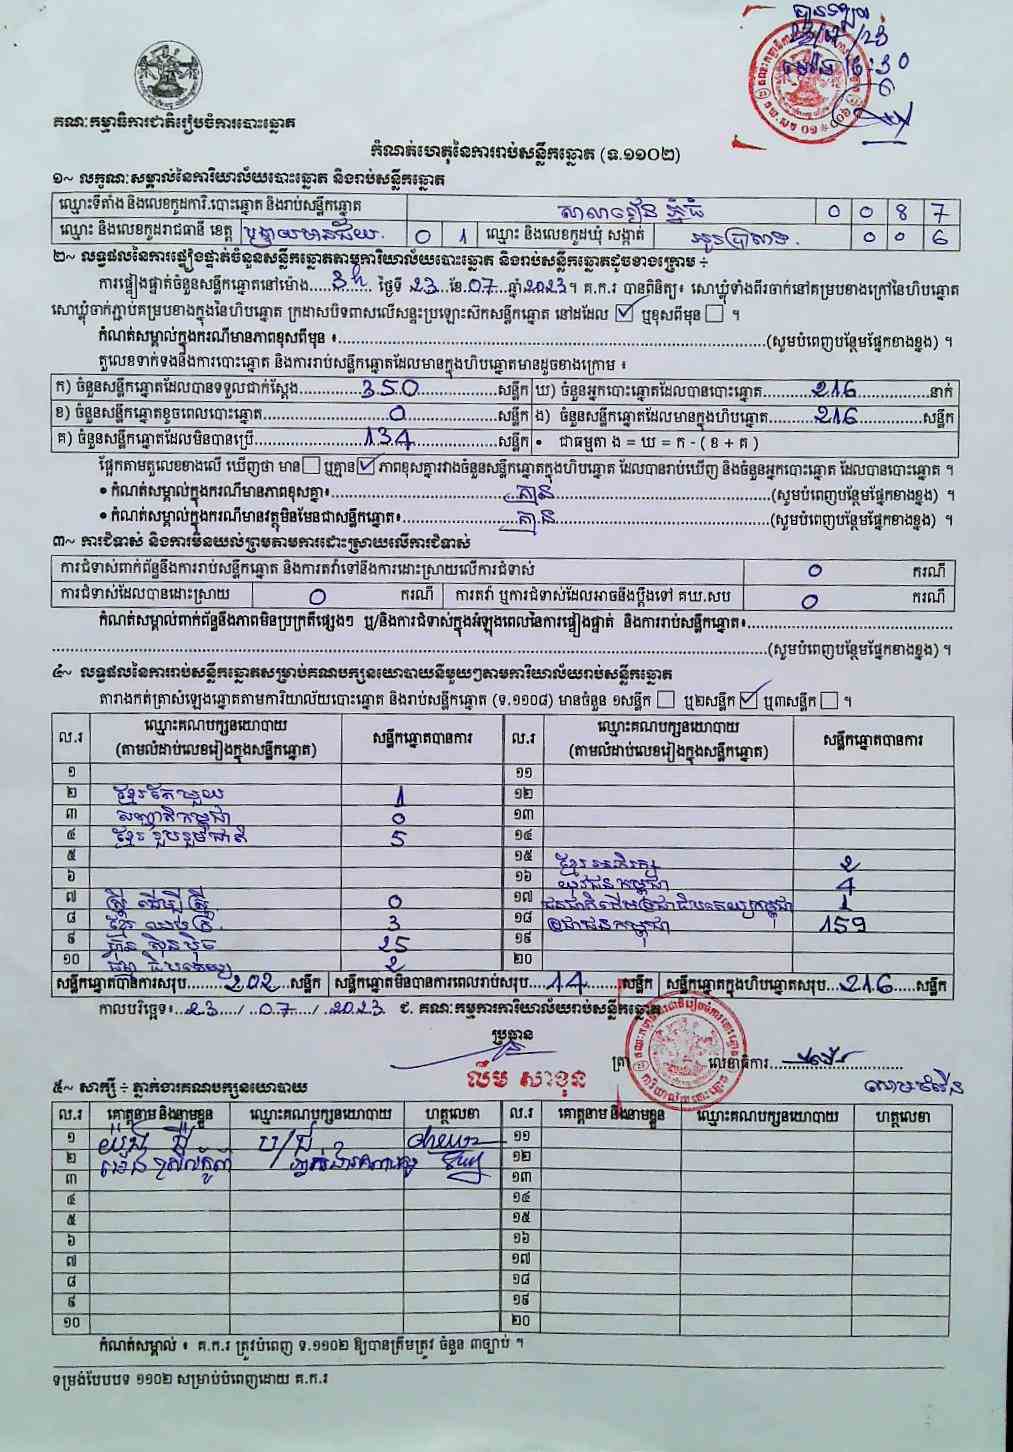 បានទទួល
23/07/23
ម៉ោង 6:30
គណៈកម្មាធិការជាតិរៀបចំការបោះឆ្នោត
កំណត់ហេតុនៃការរាប់សន្លឹកឆ្នោត (ទ.១១០២)
១~ លក្ខណៈសម្គាល់នៃការិយាល័យបោះឆ្នោត និងរាប់សន្លឹកឆ្នោត
ឈ្មោះទីតាំង និងលេខកូដការិ.បោះឆ្នោត និងរាប់សន្លឹកឆ្នោត 0 0 8 7
ឈ្មោះ និងលេខកូដរាជធានី ខេត្ត បន្ទាយមានជ័យ 0 1 ឈ្មោះ និងលេខកូដឃុំ សង្កាត់ អូរប្រាសាទ 0 0 6
២~ លទ្ធផលនៃការផ្ទៀងផ្ទាត់ចំនួនសន្លឹកឆ្នោតតាមការិយាល័យបោះឆ្នោត និងរាប់សន្លឹកឆ្នោតដូចខាងក្រោម ÷
ការផ្ទៀងផ្ទាត់ចំនួនសន្លឹកឆ្នោតនៅម៉ោង....3h.... ថ្ងៃទី 23 ខែ.07..ឆ្នាំ 2023។ គ.ក.រ បានពិនិត្យ៖ សោឃ្លុំទាំងពីរចាក់នៅគម្របខាងក្រៅនៃហិបឆ្នោត
សោឃ្លុំចាក់ភ្ជាប់គម្របខាងក្នុងនៃហិបឆ្នោត ក្រដាសបិទពាសលើសន្ទះប្រឡោះស៊កសន្លឹកឆ្នោត នៅដដែល ☑ ឬខុសពីមុន ☐ ។
កំណត់សម្គាល់ក្នុងករណីមានភាពខុសពីមុន ៖......(សូមបំពេញបន្ថែមផ្នែកខាងខ្នង) ។
តួលេខទាក់ទងនឹងការបោះឆ្នោត និងការរាប់សន្លឹកឆ្នោតដែលមានក្នុងហិបឆ្នោតមានដូចខាងក្រោម ៖
ក) ចំនួនសន្លឹកឆ្នោតដែលបានទទួលជាក់ស្តែង......350......សន្លឹក ឃ) ចំនួនអ្នកបោះឆ្នោតដែលបានបោះឆ្នោត......216......នាក់
ខ) ចំនួនសន្លឹកឆ្នោតខូចពេលបោះឆ្នោត......0......សន្លឹក ង) ចំនួនសន្លឹកឆ្នោតដែលមានក្នុងហិបឆ្នោត......216......សន្លឹក
គ) ចំនួនសន្លឹកឆ្នោតដែលមិនបានប្រើ......134......សន្លឹក • ជាធម្មតា ង = ឃ = ក - ( ខ + គ )
ផ្អែកតាមតួលេខខាងលើ ឃើញថា មាន ☐ ឬគ្មាន ☑ ភាពខុសគ្នារវាងចំនួនសន្លឹកឆ្នោតក្នុងហិបឆ្នោត ដែលបានរាប់ឃើញ និងចំនួនអ្នកបោះឆ្នោត ដែលបានបោះឆ្នោត ។
• កំណត់សម្គាល់ក្នុងករណីមានភាពខុសគ្នា៖......គ្មាន......(សូមបំពេញបន្ថែមផ្នែកខាងខ្នង) ។
• កំណត់សម្គាល់ក្នុងករណីមានវត្ថុមិនមែនជាសន្លឹកឆ្នោត៖......គ្មាន......(សូមបំពេញបន្ថែមផ្នែកខាងខ្នង) ។
៣~ ការជំទាស់ និងការមិនយល់ព្រមតាមការដោះស្រាយលើការជំទាស់
ការជំទាស់ពាក់ព័ន្ធនឹងការរាប់សន្លឹកឆ្នោត និងការតវ៉ាទៅនឹងការដោះស្រាយលើការជំទាស់ 0 ករណី
ការជំទាស់ដែលបានដោះស្រាយ 0 ករណី ការតវ៉ា ឬការជំទាស់ដែលអាចនឹងប្តឹងទៅ គឃ.សប 0 ករណី
កំណត់សម្គាល់ពាក់ព័ន្ធនឹងភាពមិនប្រក្រតីផ្សេងៗ ឬ/និងការជំទាស់ក្នុងអំឡុងពេលនៃការផ្ទៀងផ្ទាត់ និងការរាប់សន្លឹកឆ្នោត៖......
......(សូមបំពេញបន្ថែមផ្នែកខាងខ្នង) ។
៤~ លទ្ធផលនៃការរាប់សន្លឹកឆ្នោតសម្រាប់គណបក្សនយោបាយនីមួយៗតាមការិយាល័យរាប់សន្លឹកឆ្នោត
តារាងកត់ត្រាសំឡេងឆ្នោតតាមការិយាល័យបោះឆ្នោត និងរាប់សន្លឹកឆ្នោត (ទ.១១០៨) មានចំនួន ១សន្លឹក ☐ ឬ២សន្លឹក ☑ ឬ៣សន្លឹក ☐ ។
ល.រ ឈ្មោះគណបក្សនយោបាយ (តាមលំដាប់លេខរៀងក្នុងសន្លឹកឆ្នោត) សន្លឹកឆ្នោតបានការ ល.រ ឈ្មោះគណបក្សនយោបាយ (តាមលំដាប់លេខរៀងក្នុងសន្លឹកឆ្នោត) សន្លឹកឆ្នោតបានការ
១ ១១
២ ខ្មែរតែមួយ 1 ១២
៣ សញ្ជាតិកម្ពុជា 0 ១៣
៤ ខ្មែររួបរួមជាតិ 5 ១៤
៥ ១៥ ខ្មែរអភិរក្ស 2
៦ ១៦ យុវជនកម្ពុជា 4
៧ ស្ត្រីដើម្បីស្ត្រី 0 ១៧ ជនជាតិដើមប្រជាធិបតេយ្យកម្ពុជា 1
៨ ខ្មែរឈប់ក្រ 3 ១៨ ប្រជាជនកម្ពុជា 159
៩ ហ៊្វុនស៊ិនប៉ិច 25 ១៩
១០ 2 ២០
សន្លឹកឆ្នោតបានការសរុប......202......សន្លឹក សន្លឹកឆ្នោតមិនបានការពេលរាប់សរុប...14...សន្លឹក សន្លឹកឆ្នោតក្នុងហិបឆ្នោតសរុប...216...សន្លឹក
កាលបរិច្ឆេទ៖...23.../...07.../...2023 ជ. គណៈកម្មការការិយាល័យរាប់សន្លឹកឆ្នោត
ប្រធាន
ត្រា លេខាធិការ
លឹម សាខុន
៥~ សាក្សី ÷ ភ្នាក់ងារគណបក្សនយោបាយ
ល.រ គោត្តនាម និងនាមខ្លួន ឈ្មោះគណបក្សនយោបាយ ហត្ថលេខា ល.រ គោត្តនាម និងនាមខ្លួន ឈ្មោះគណបក្សនយោបាយ ហត្ថលេខា
១ ប/ជ ១១
២ ១២
៣ ១៣
៤ ១៤
៥ ១៥
៦ ១៦
៧ ១៧
៨ ១៨
៩ ១៩
១០ ២០
កំណត់សម្គាល់ ៖ គ.ក.រ ត្រូវបំពេញ ទ.១១០២ ឱ្យបានត្រឹមត្រូវ ចំនួន ៣ច្បាប់ ។
ទម្រង់បែបបទ ១១០២ សម្រាប់បំពេញដោយ គ.ក.រ